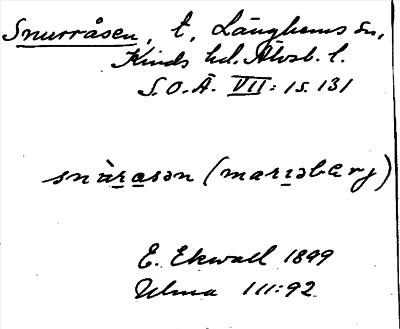 Snurråsen, t, Länghems sn,
Kinds hd. Älvsb. l.
S.O.Ä. VII: 1 s. 131
snùrasən (marɪəbærj)
E. Ekwall 1899
Ulma 111:92